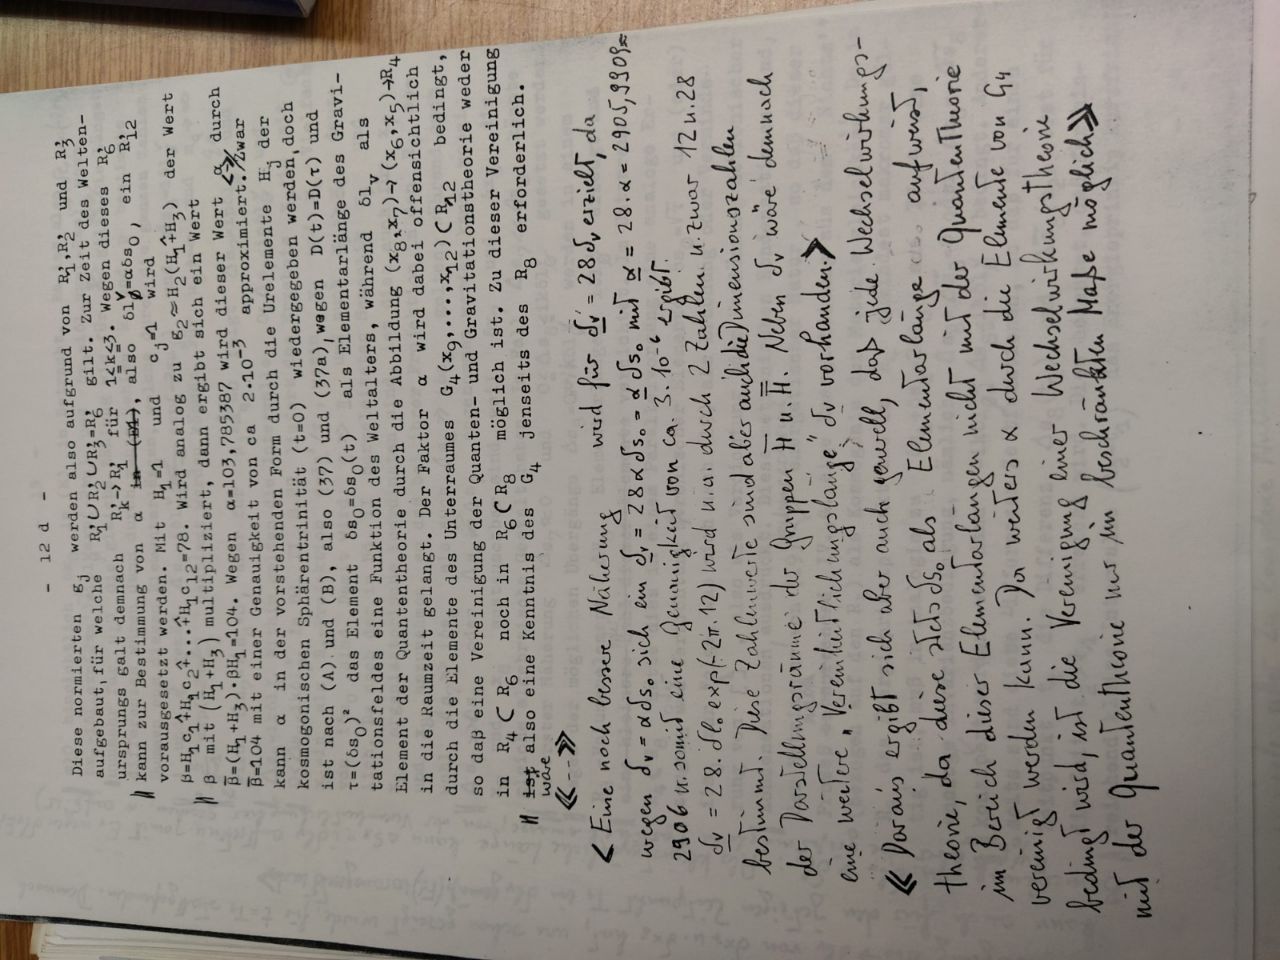 - 12 d -
Diese normierten g_j werden also aufgrund von R'_1, R'_2 und R'_3
aufgebaut, für welche R'_1∪R'_2∪R'_3=R'_6 gilt. Zur Zeit des Welten-
ursprungs galt demnach R'_k→R'_1 für 1≤k≤3. Wegen dieses R'_6
kann zur Bestimmung von α in (B4), also δl_v=αδs_0, ein R'_12
vorausgesetzt werden. Mit H_1=1 und c_j=1 wird
β=H_1c_1+̂H_1c_2+̂...+̂H_1c_12=78. Wird analog zu g_2≃H_2(H_1+̂H_3) der Wert
β mit (H_1+H_3) multipliziert, dann ergibt sich ein Wert
β̄=(H_1+H_3)·βH_1=104. Wegen α=103,785387 wird dieser Wert α durch
β̄=104 mit einer Genauigkeit von ca 2·10⁻³ approximiert. Zwar
kann α in der vorstehenden Form durch die Urelemente H_j der
kosmogonischen Sphärentrinität (t=0) wiedergegeben werden, doch
ist nach (A) und (B), also (37) und (37a), wegen D(t)=D(τ) und
τ=(δs_0)² das Element δs_0=δs_0(t) als Elementarlänge des Gravi-
tationsfeldes eine Funktion des Weltalters, während δl_v als
Element der Quantentheorie durch die Abbildung (x_8,x_7)→(x_6,x_5)→R_4
in die Raumzeit gelangt. Der Faktor α wird dabei offensichtlich
durch die Elemente des Unterraumes G_4(x_9,...,x_12)⊂R_12 bedingt,
so daß eine Vereinigung der Quanten- und Gravitationstheorie weder
in R_4⊂R_6 noch in R_6⊂R_8 möglich ist. Zu dieser Vereinigung
ist also eine Kenntnis des G_4 jenseits des R_8 erforderlich.
wäre
《--->》
< Eine noch bessere Näherung wird für δ_v = 28δ_v erzielt, da
wegen δ_v = αδs_0 sich ein δ_v = 28αδs_0 = αδs_0 mit α = 28·α = 2905,9909 ≈
2906 u. somit eine Genauigkeit von ca. 3·10⁻⁶ ergibt.
δ_v = 28·δl_0 exp(-2π·12) wird u.a. durch 2 Zahlen u. zwar 12 u. 28
bestimmt. Diese Zahlenwerte sind aber auch die Dimensionszahlen
der Darstellungsräume der Gruppen H u. H. Neben δ_v wäre demnach
eine weitere „Vereinheitlichungslänge" δ_v vorhanden.>
《 Daraus ergibt sich aber auch generell, daß jede Wechselwirkungs-
theorie, da diese stets δs_0 als Elementarlänge aufweist,
im Bereich dieser Elementarlängen nicht mit der Quantentheorie
vereinigt werden kann. Da weiters α durch die Elemente von G_4
bedingt wird, ist die Vereinigung einer Wechselwirkungstheorie
mit der Quantentheorie nur im beschränkten Maße möglich》